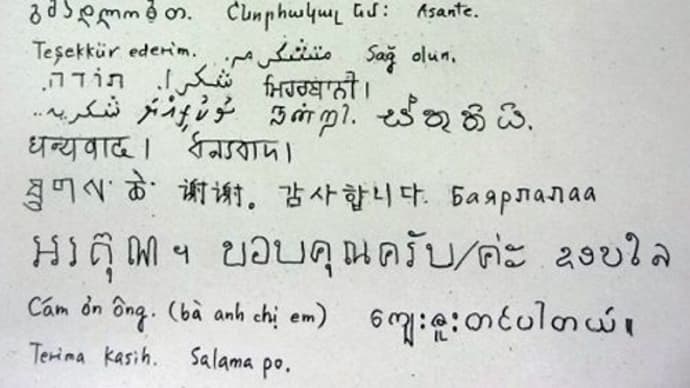 Շնորհակալ եմ: Asante.
Teşekkür ederim. متشکرم. Sağ olun.
תודה. شكرا. ਮਿਹਰਬਾਨੀ।
شکریہ .. நன்றி. ස්තුතියි.
धन्यवाद।
谢谢。 감사합니다. Баярлалаа
អរគុណ។ ขอบคุณครับ/ค่ะ ຂອບໃຈ
Cám ơn ông. (bà anh chị em) ကျေးဇူးတင်ပါတယ်။
Terima kasih. Salama po.